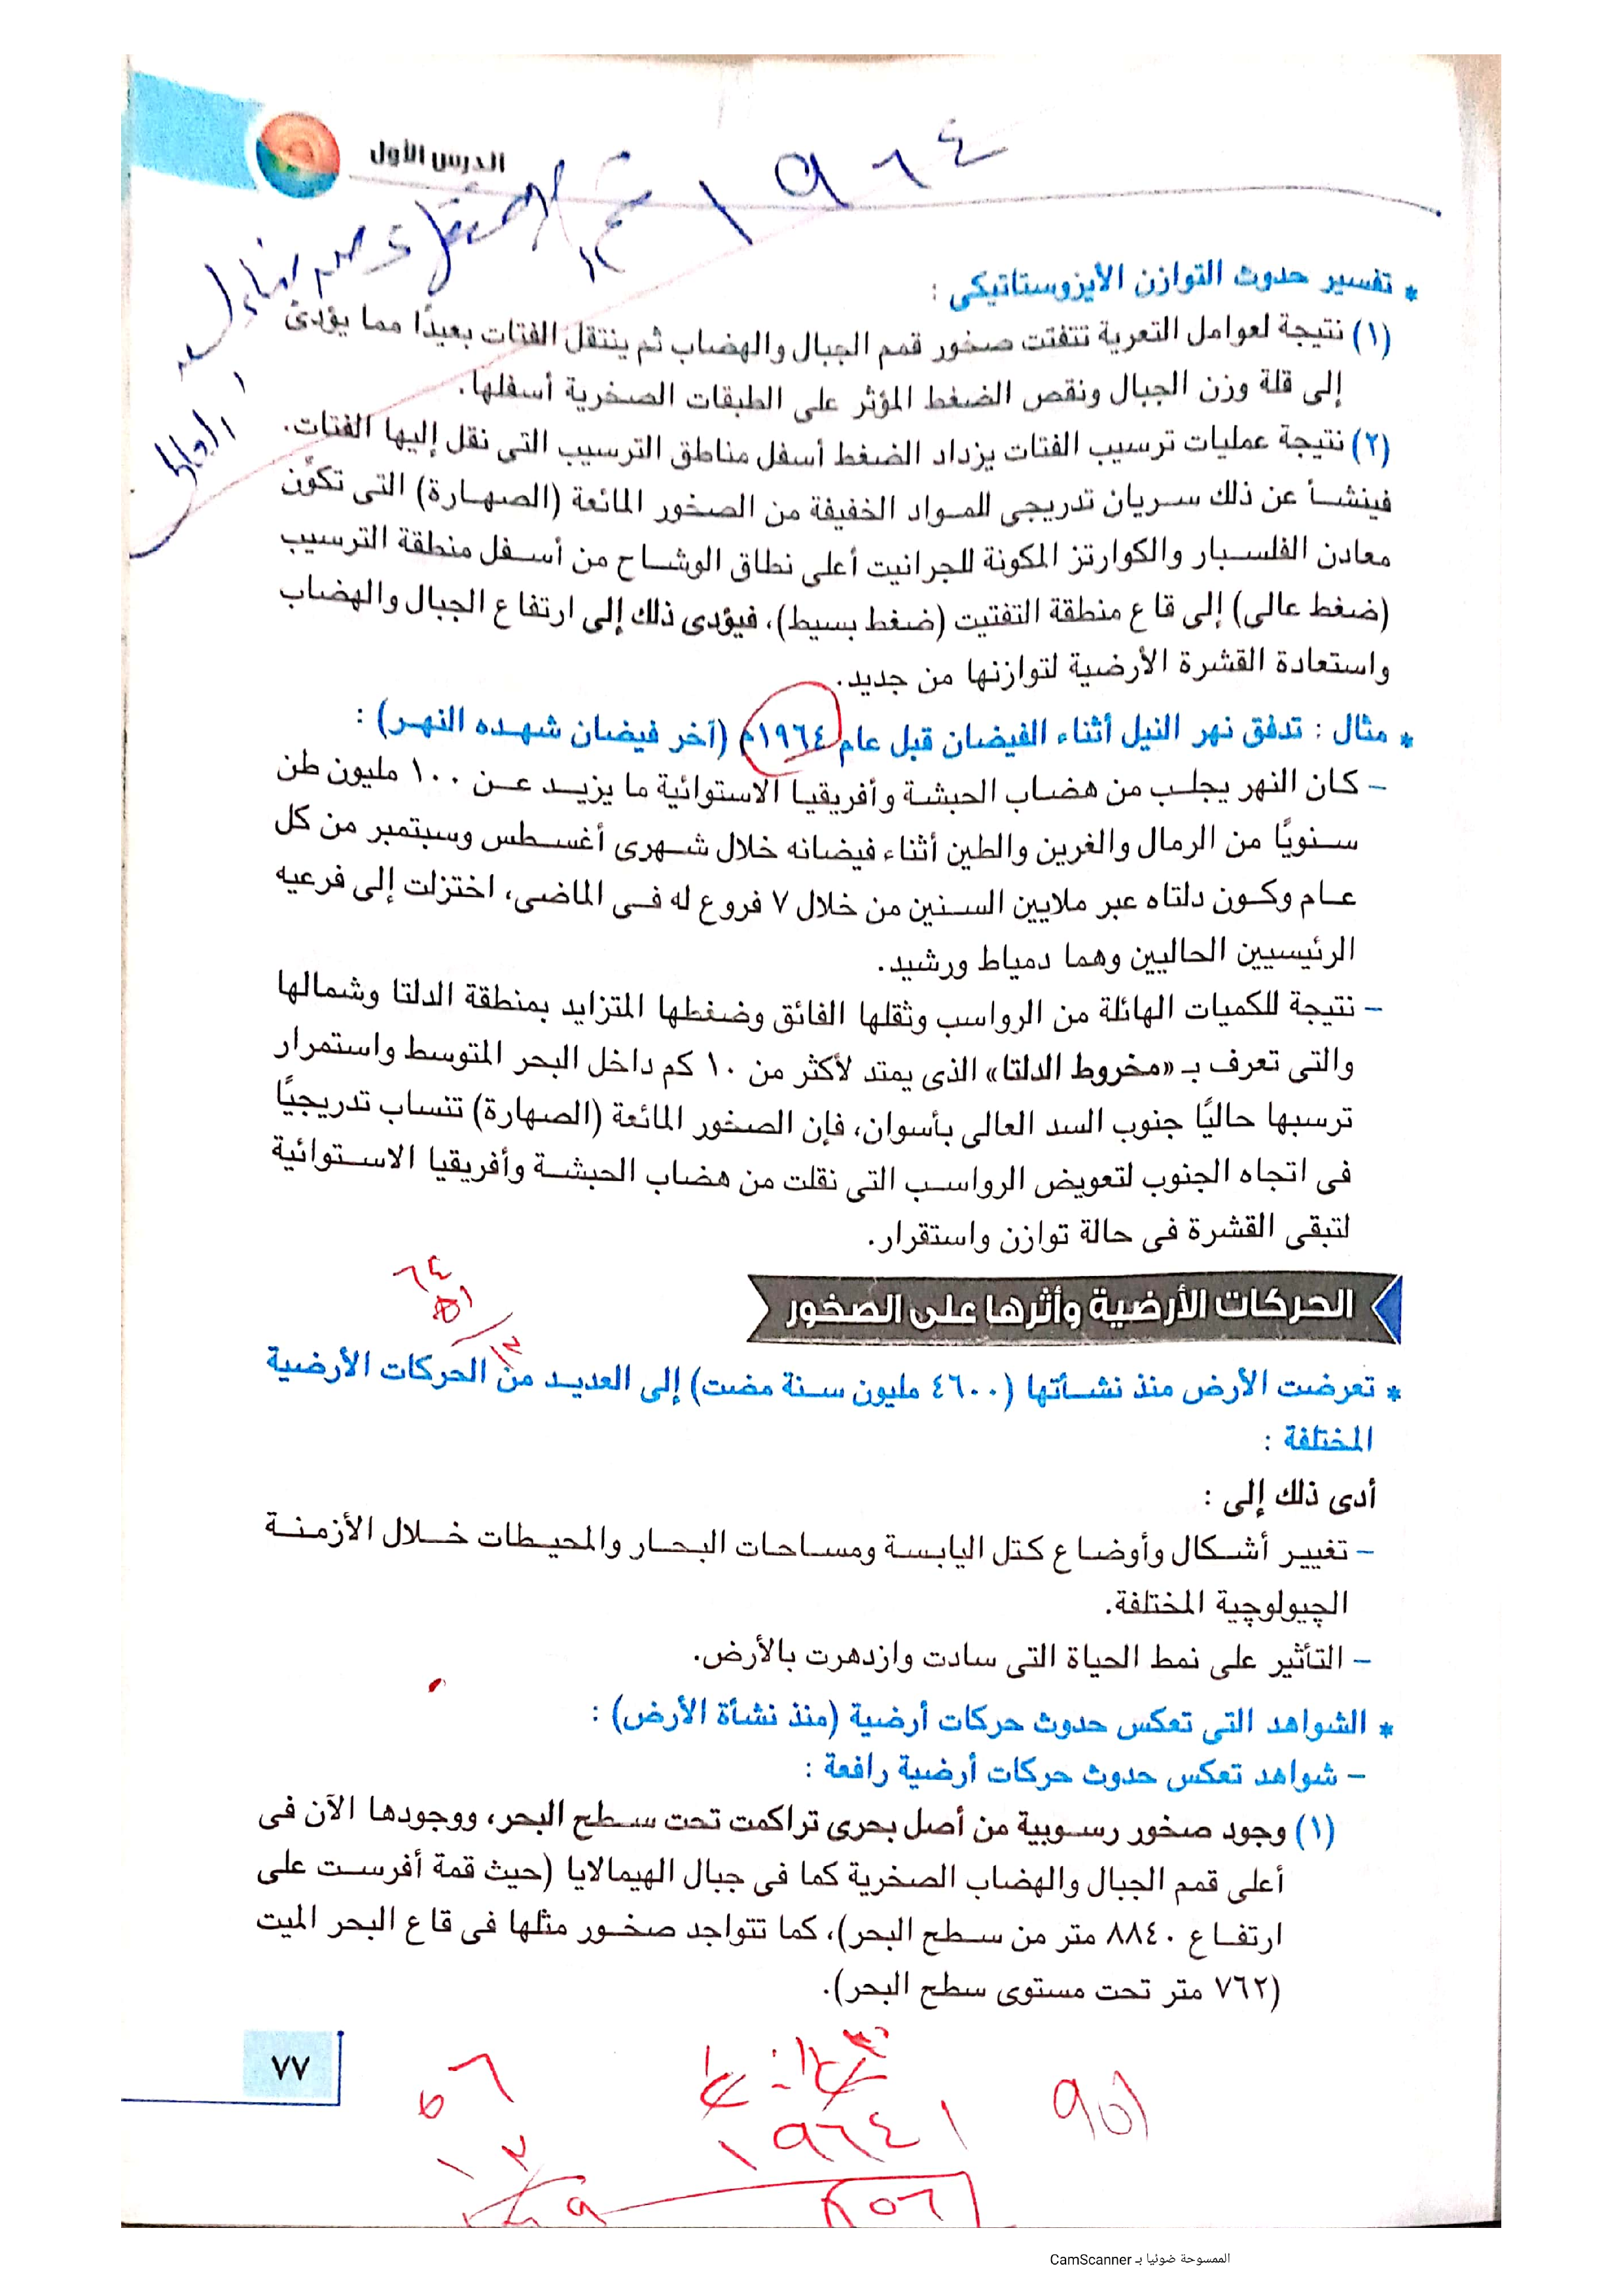 الدرس الأول
١٩٦٤
* تفسير حدوث التوازن الأيزوستاتيكى :
(١) نتيجة لعوامل التعرية تتفتت صخور قمم الجبال والهضاب ثم ينتقل الفتات بعيدًا مما يؤدى
إلى قلة وزن الجبال ونقص الضغط المؤثر على الطبقات الصخرية أسفلها.
(٢) نتيجة عمليات ترسيب الفتات يزداد الضغط أسفل مناطق الترسيب التى نقل إليها الفتات.
فينشأ عن ذلك سريان تدريجى للمواد الخفيفة من الصخور المائعة (الصهارة) التى تكوِّن
معادن الفلسبار والكوارتز المكونة للجرانيت أعلى نطاق الوشاح من أسفل منطقة الترسيب
(ضغط عالى) إلى قاع منطقة التفتيت (ضغط بسيط)، فيؤدى ذلك إلى ارتفاع الجبال والهضاب
واستعادة القشرة الأرضية لتوازنها من جديد.
* مثال : تدفق نهر النيل أثناء الفيضان قبل عام ١٩٦٤م (آخر فيضان شهده النهر) :
- كان النهر يجلب من هضاب الحبشة وأفريقيا الاستوائية ما يزيد عن ١٠٠ مليون طن
سنويًا من الرمال والغرين والطين أثناء فيضانه خلال شهرى أغسطس وسبتمبر من كل
عام وكون دلتاه عبر ملايين السنين من خلال ٧ فروع له فى الماضى، اختزلت إلى فرعيه
الرئيسيين الحاليين وهما دمياط ورشيد.
- نتيجة للكميات الهائلة من الرواسب وثقلها الفائق وضغطها المتزايد بمنطقة الدلتا وشمالها
والتى تعرف بـ «مخروط الدلتا» الذى يمتد لأكثر من ١٠ كم داخل البحر المتوسط واستمرار
ترسبها حاليًا جنوب السد العالى بأسوان، فإن الصخور المائعة (الصهارة) تنساب تدريجيًا
فى اتجاه الجنوب لتعويض الرواسب التى نقلت من هضاب الحبشة وأفريقيا الاستوائية
لتبقى القشرة فى حالة توازن واستقرار.
٦٤
الحركات الأرضية وأثرها على الصخور
* تعرضت الأرض منذ نشأتها (٤٦٠٠ مليون سنة مضت) إلى العديد من الحركات الأرضية
المختلفة :
أدى ذلك إلى :
- تغيير أشكال وأوضاع كتل اليابسة ومساحات البحار والمحيطات خلال الأزمنة
الچيولوچية المختلفة.
- التأثير على نمط الحياة التى سادت وازدهرت بالأرض.
* الشواهد التى تعكس حدوث حركات أرضية (منذ نشأة الأرض) :
- شواهد تعكس حدوث حركات أرضية رافعة :
(١) وجود صخور رسوبية من أصل بحرى تراكمت تحت سطح البحر، ووجودها الآن فى
أعلى قمم الجبال والهضاب الصخرية كما فى جبال الهيمالايا (حيث قمة أفرست على
ارتفاع ٨٨٤٠ متر من سطح البحر)، كما تتواجد صخور مثلها فى قاع البحر الميت
(٧٦٢ متر تحت مستوى سطح البحر).
٧٧
١٩٦٤
الممسوحة ضوئيا بـ CamScanner